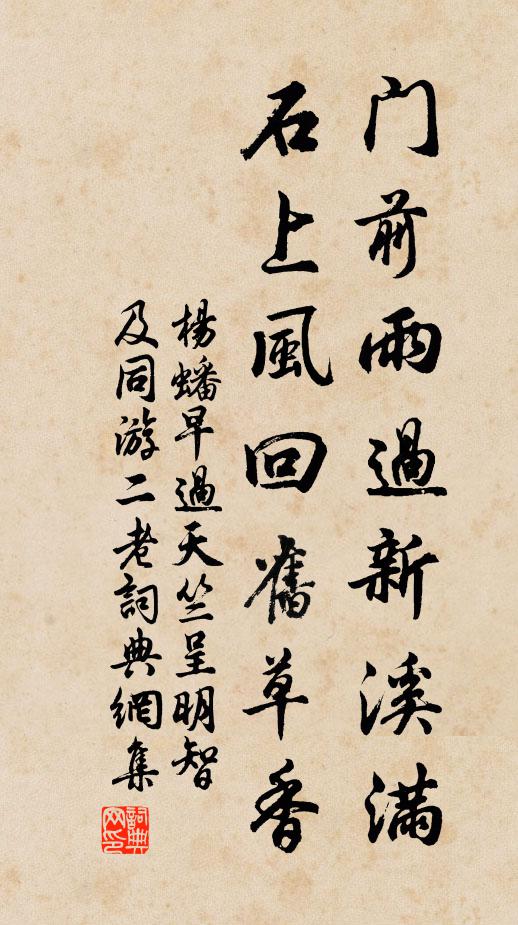 门前雨過新溪滿
石上風回舊草香
楊蟠早過天竺呈明智
及同游二老詞典網集
詞典网印